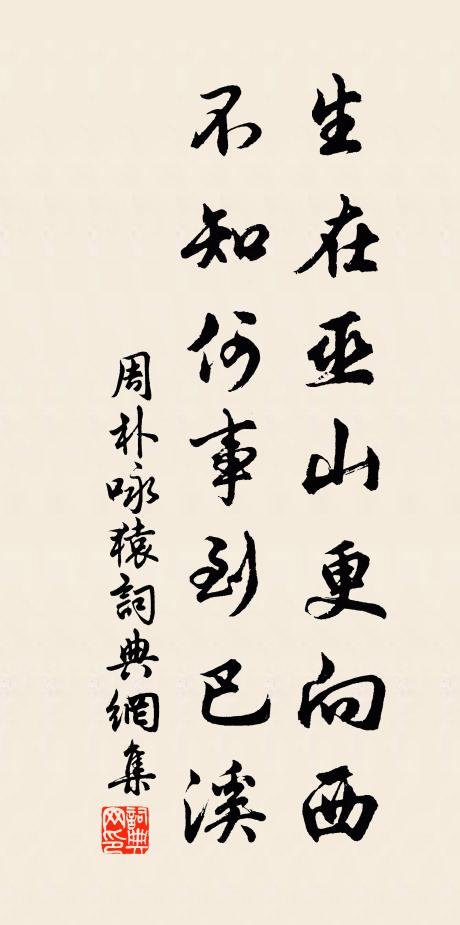 生在巫山更向西
不知何事到巴溪
周朴咏猿詞典網集
詞典网印